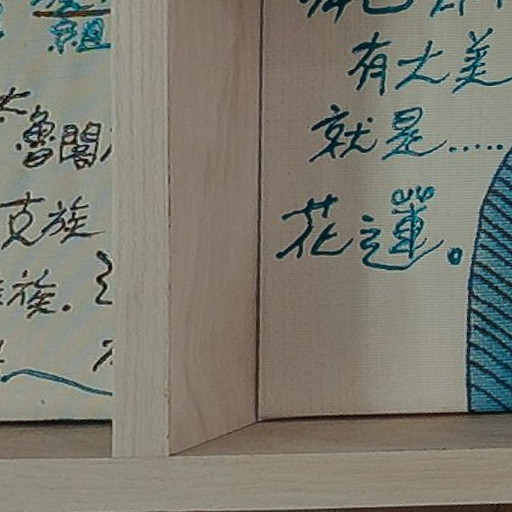 組
魯閣
克族
族.
有大美
就是.....
花蓮。